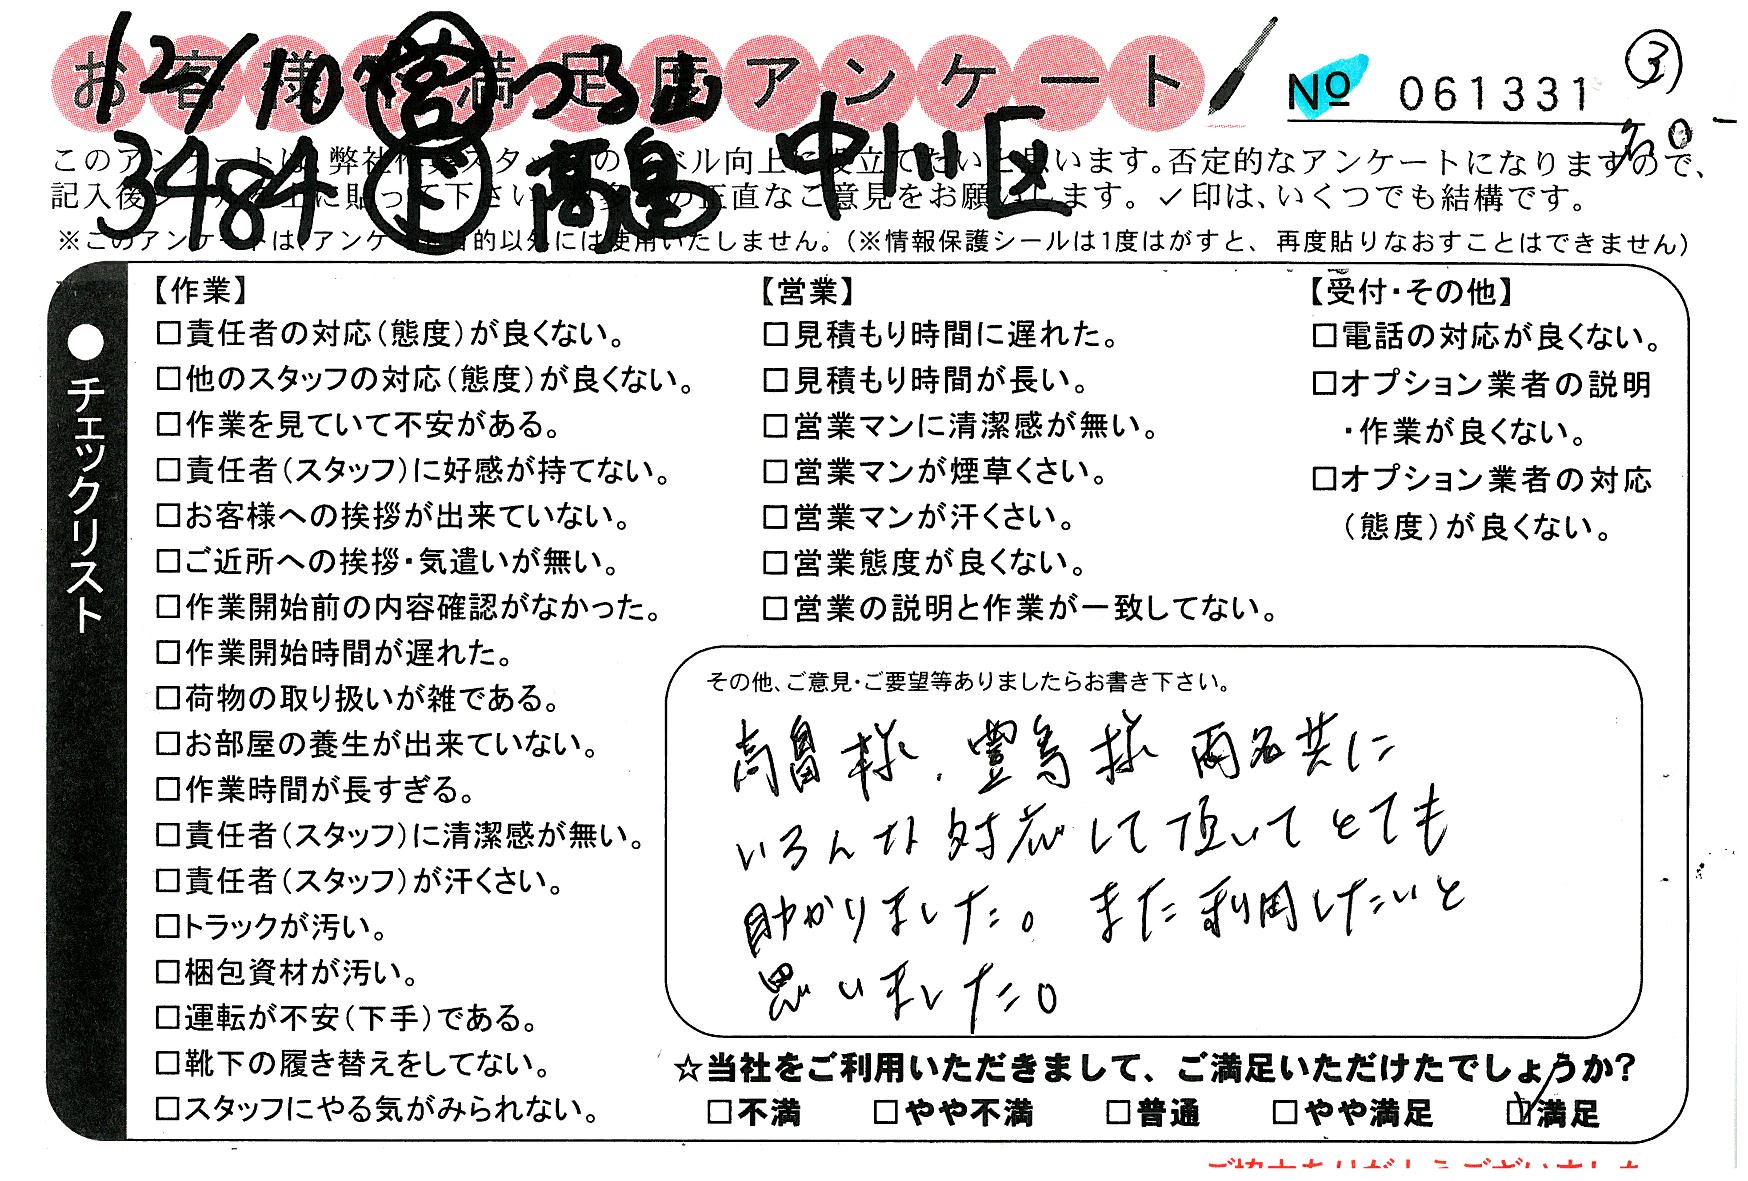 お客様 満足度アンケート
12/10 営 つる
№ 061331
③
3484 下 高畠 中川区
このアンケートは、弊社作業スタッフのレベル向上に役立てたいと思います。否定的なアンケートになりますので、
記入後シールを上に貼って下さい。 の正直なご意見をお願いします。✓印は、いくつでも結構です。
※このアンケートは、アンケート目的以外には使用いたしません。（※情報保護シールは1度はがすと、再度貼りなおすことはできません）
●チェックリスト
【作業】
□責任者の対応（態度）が良くない。
□他のスタッフの対応（態度）が良くない。
□作業を見ていて不安がある。
□責任者（スタッフ）に好感が持てない。
□お客様への挨拶が出来ていない。
□ご近所への挨拶・気遣いが無い。
□作業開始前の内容確認がなかった。
□作業開始時間が遅れた。
□荷物の取り扱いが雑である。
□お部屋の養生が出来ていない。
□作業時間が長すぎる。
□責任者（スタッフ）に清潔感が無い。
□責任者（スタッフ）が汗くさい。
□トラックが汚い。
□梱包資材が汚い。
□運転が不安（下手）である。
□靴下の履き替えをしてない。
□スタッフにやる気がみられない。
【営業】
□見積もり時間に遅れた。
□見積もり時間が長い。
□営業マンに清潔感が無い。
□営業マンが煙草くさい。
□営業マンが汗くさい。
□営業態度が良くない。
□営業の説明と作業が一致してない。
【受付・その他】
□電話の対応が良くない。
□オプション業者の説明
・作業が良くない。
□オプション業者の対応
（態度）が良くない。
その他、ご意見・ご要望等ありましたらお書き下さい。
高畠様、豊島様 両名共に
いろんな対応して頂いてとても
助かりました。また利用したいと
思いました。
☆当社をご利用いただきまして、ご満足いただけたでしょうか?
□不満 □やや不満 □普通 □やや満足 ☑満足
ご協力ありがとうございました